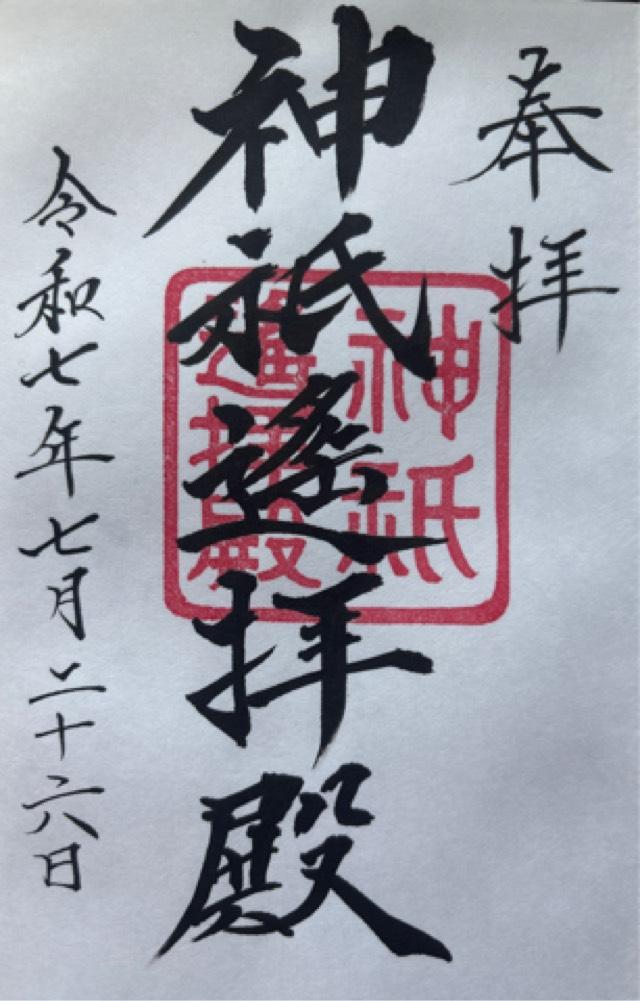 奉拝
神祇遙拝殿
神祇
遥拝殿
令和七年七月二十六日